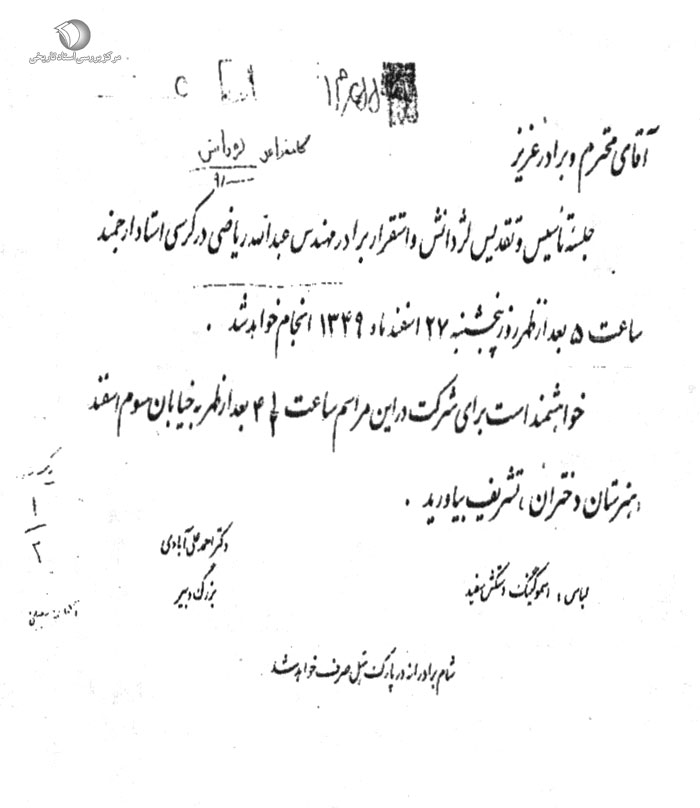 مرکز بررسی اسناد تاریخی
آقای محترم و برادر عزیز
لژ دانش
جلسه تأسیس و تقدیس لژ دانش و استقرار برادر مهندس عبدالله ریاضی در کرسی استاد ارجمند
ساعت ۵ بعد از ظهر روز پنجشنبه ۲۷ اسفند ماه ۱۳۴۹ انجام خواهد شد .
خواهشمند است برای شرکت در این مراسم ساعت ۴ ۱/۲ بعد از ظهر به خیابان سوم اسفند
هنرستان دختران ، تشریف بیاورید .
دکتر احمد علی آبادی
بزرگ دبیر
لباس : اسموکینگ و دستکش سفید
شام برادرانه در پارک هتل صرف خواهد شد